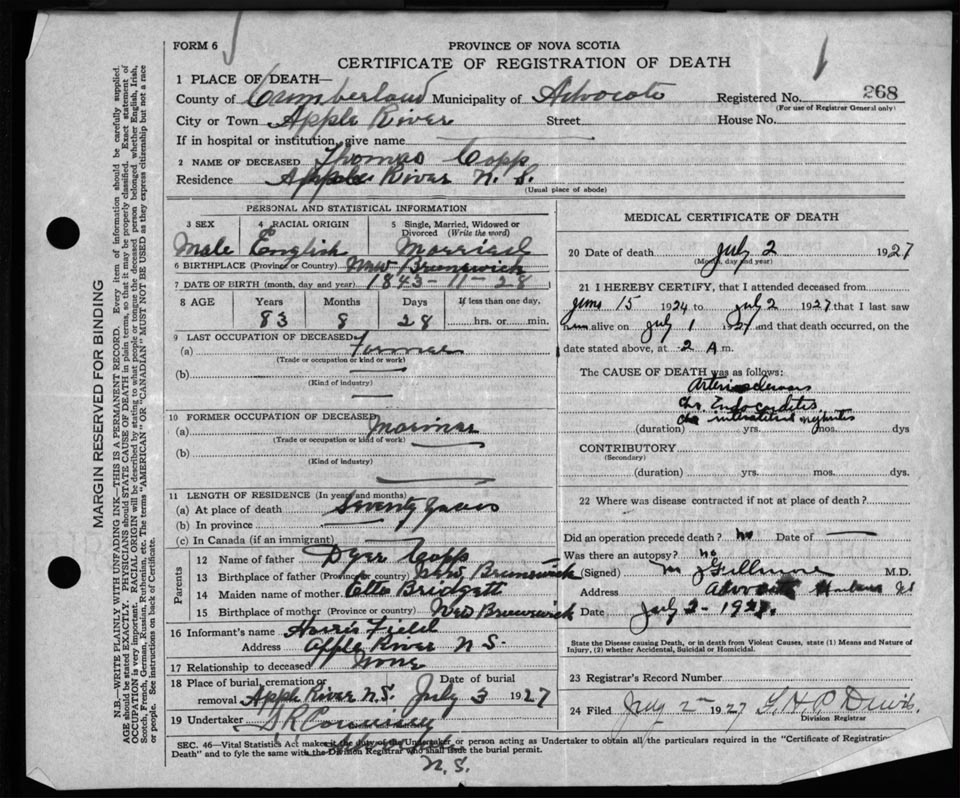 FORM 6
PROVINCE OF NOVA SCOTIA
CERTIFICATE OF REGISTRATION OF DEATH
1 PLACE OF DEATH—
County of Cumberland Municipality of Advocate Registered No. 268
(For use of Registrar General only)
City or Town Apple River Street House No.
If in hospital or institution, give name
2 NAME OF DECEASED Thomas Copp
Residence Apple River N. S.
(Usual place of abode)
MARGIN RESERVED FOR BINDING
N.B.—WRITE PLAINLY WITH UNFADING INK—THIS IS A PERMANENT RECORD. Every item of information should be carefully supplied.
AGE should be stated EXACTLY. PHYSICIANS should STATE CAUSE OF DEATH in plain terms, so that it may be properly classified. Exact statement of
OCCUPATION is very important. RACIAL ORIGIN will be described by stating to what people or tongue the deceased person belonged whether English, Irish,
Scotch, French, German, Russian, Ruthenian, etc. The terms "AMERICAN" OR "CANADIAN" MUST NOT BE USED as they express citizenship but not a race
or people. See instructions on back of Certificate.
PERSONAL AND STATISTICAL INFORMATION
3 SEX 4 RACIAL ORIGIN 5 Single, Married, Widowed or
Divorced (Write the word)
Male English Married
6 BIRTHPLACE (Province or Country) New Brunswick
7 DATE OF BIRTH (month, day and year) 1843-11-28
8 AGE Years Months Days If less than one day,
83 8 28 hrs. or min.
9 LAST OCCUPATION OF DECEASED
(a) Farmer
(Trade or occupation or kind or work)
(b)
(Kind of industry)
10 FORMER OCCUPATION OF DECEASED
(a) Mariner
(Trade or occupation or kind of work)
(b)
(Kind of industry)
11 LENGTH OF RESIDENCE (In years and months)
(a) At place of death Seventy years
(b) In province
(c) In Canada (if an immigrant)
Parents
12 Name of father Dyer Copp
13 Birthplace of father (Province or country) New Brunswick
14 Maiden name of mother Etta Bridgett
15 Birthplace of mother (Province or country) New Brunswick
16 Informant's name Harris Field
Address Apple River N S
17 Relationship to deceased
18 Place of burial, cremation or removal Apple River N.S. Date of burial July 3 1927
19 Undertaker
N.S.
MEDICAL CERTIFICATE OF DEATH
20 Date of death July 2 1927
(Month, day and year)
21 I HEREBY CERTIFY, that I attended deceased from
15 1924 to July 2 1927 that I last saw
him alive on July 1 1927 and that death occurred, on the
date stated above, at 2 A m.
The CAUSE OF DEATH was as follows:
Arteriosclerosis
Chr Endocarditis
Chr interstitial nephritis
(duration) yrs. mos. dys
CONTRIBUTORY
(Secondary)
(duration) yrs. mos. dys.
22 Where was disease contracted if not at place of death?
Did an operation precede death? No Date of
Was there an autopsy? No
(Signed) M D.
Address Advocate Harbour
Date July 2-1927.
State the Disease causing Death, or in death from Violent Causes, state (1) Means and Nature of
Injury, (2) whether Accidental, Suicidal or Homicidal.
23 Registrar's Record Number
24 Filed July 2 1927
Division Registrar
SEC. 46—Vital Statistics Act makes it the duty of the Undertaker, or person acting as Undertaker to obtain all the particulars required in the "Certificate of Registration of
Death" and to fyle the same with the Division Registrar who shall issue the burial permit.